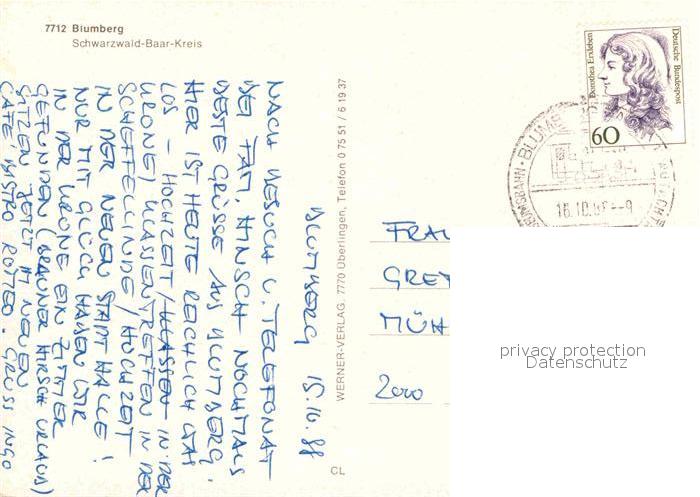 7712 Blumberg
Schwarzwald-Baar-Kreis
BLUMBERG, 15.10.88
NACH BESUCH U. TELEFONAT
BEI FAM. HINSCH NOCHMALS
BESTE GRÜSSE AUS BLUMBERG.
HIER IST HEUTE REICHLICH WAS
LOS - HOCHZEIT/KLASSEN IN DER
KRONE, KLASSENTREFFEN IN DER
SCHEFFELLINDE / HOCHZEIT
IN DER NEUEN STADTHALLE!
NUR MIT GLÜCK HABEN WIR
IN DER KRONE EIN ZIMMER
GEFUNDEN (BRAUNER HIRSCH URLAUB)
SITZEN JETZT IM NEUEN
CAFE BISTRO GRUSS INGO
WERNER-VERLAG, 7770 Überlingen, Telefon 0 75 51 / 6 19 37
CL
Dorothea Erxleben
Deutsche Bundespost
60
FRAU
GRET
MÜH
2000
privacy protection
Datenschutz